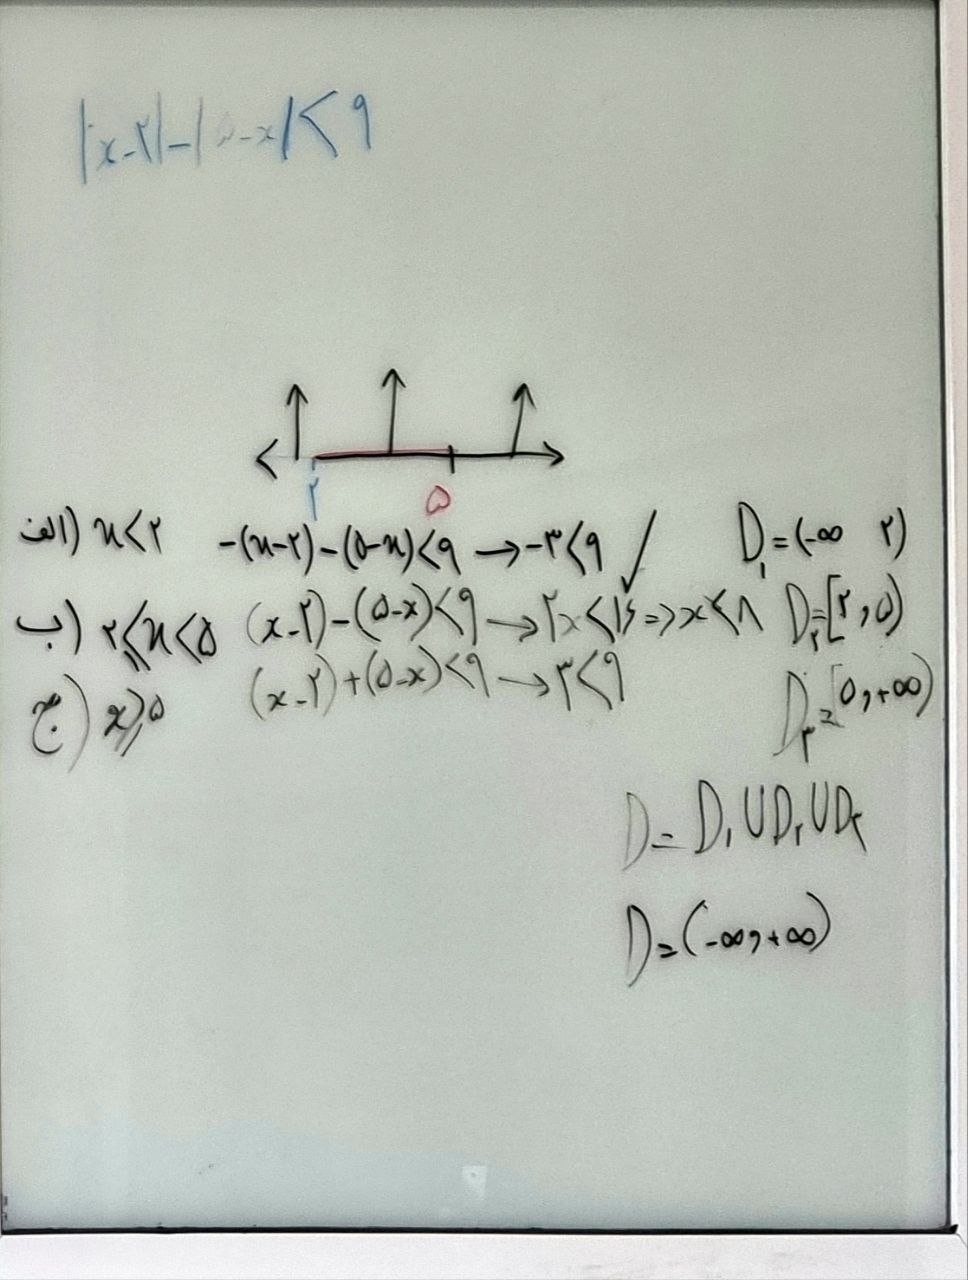 |x-۲|-|۵-x|<۹
۲ ۵
الف) x<۲ -(x-۲)-(۵-x)<۹ → -۳<۹ ✓ D₁=(-∞ ۲)
ب) ۲≤x<۵ (x-۲)-(۵-x)<۹ → ۲x<۱۶ => x<۸ D₂=[۲,۵)
ج) x≥۵ (x-۲)+(۵-x)<۹ → ۳<۹ D₃=[۵,+∞)
D=D₁UD₂UD₃
D=(-∞,+∞)